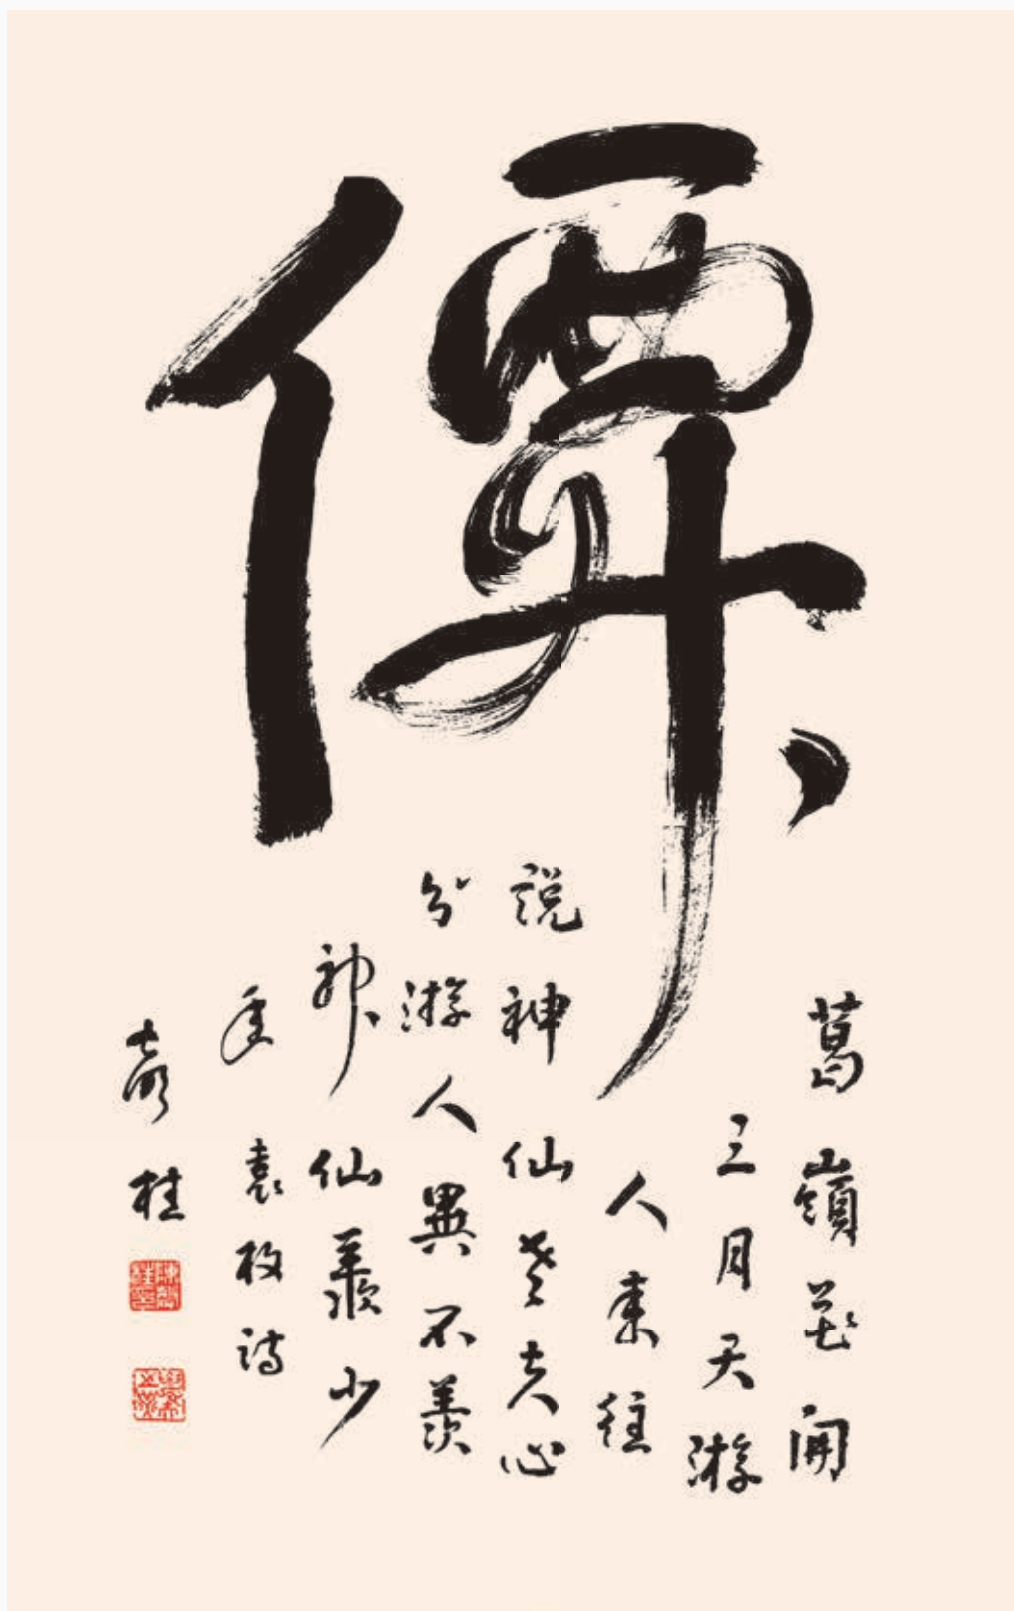 僊
葛嶺花開
三月天游
人來往
說神仙老夫心
与游人異不羨
神仙羨少
年 袁枚詩
桂